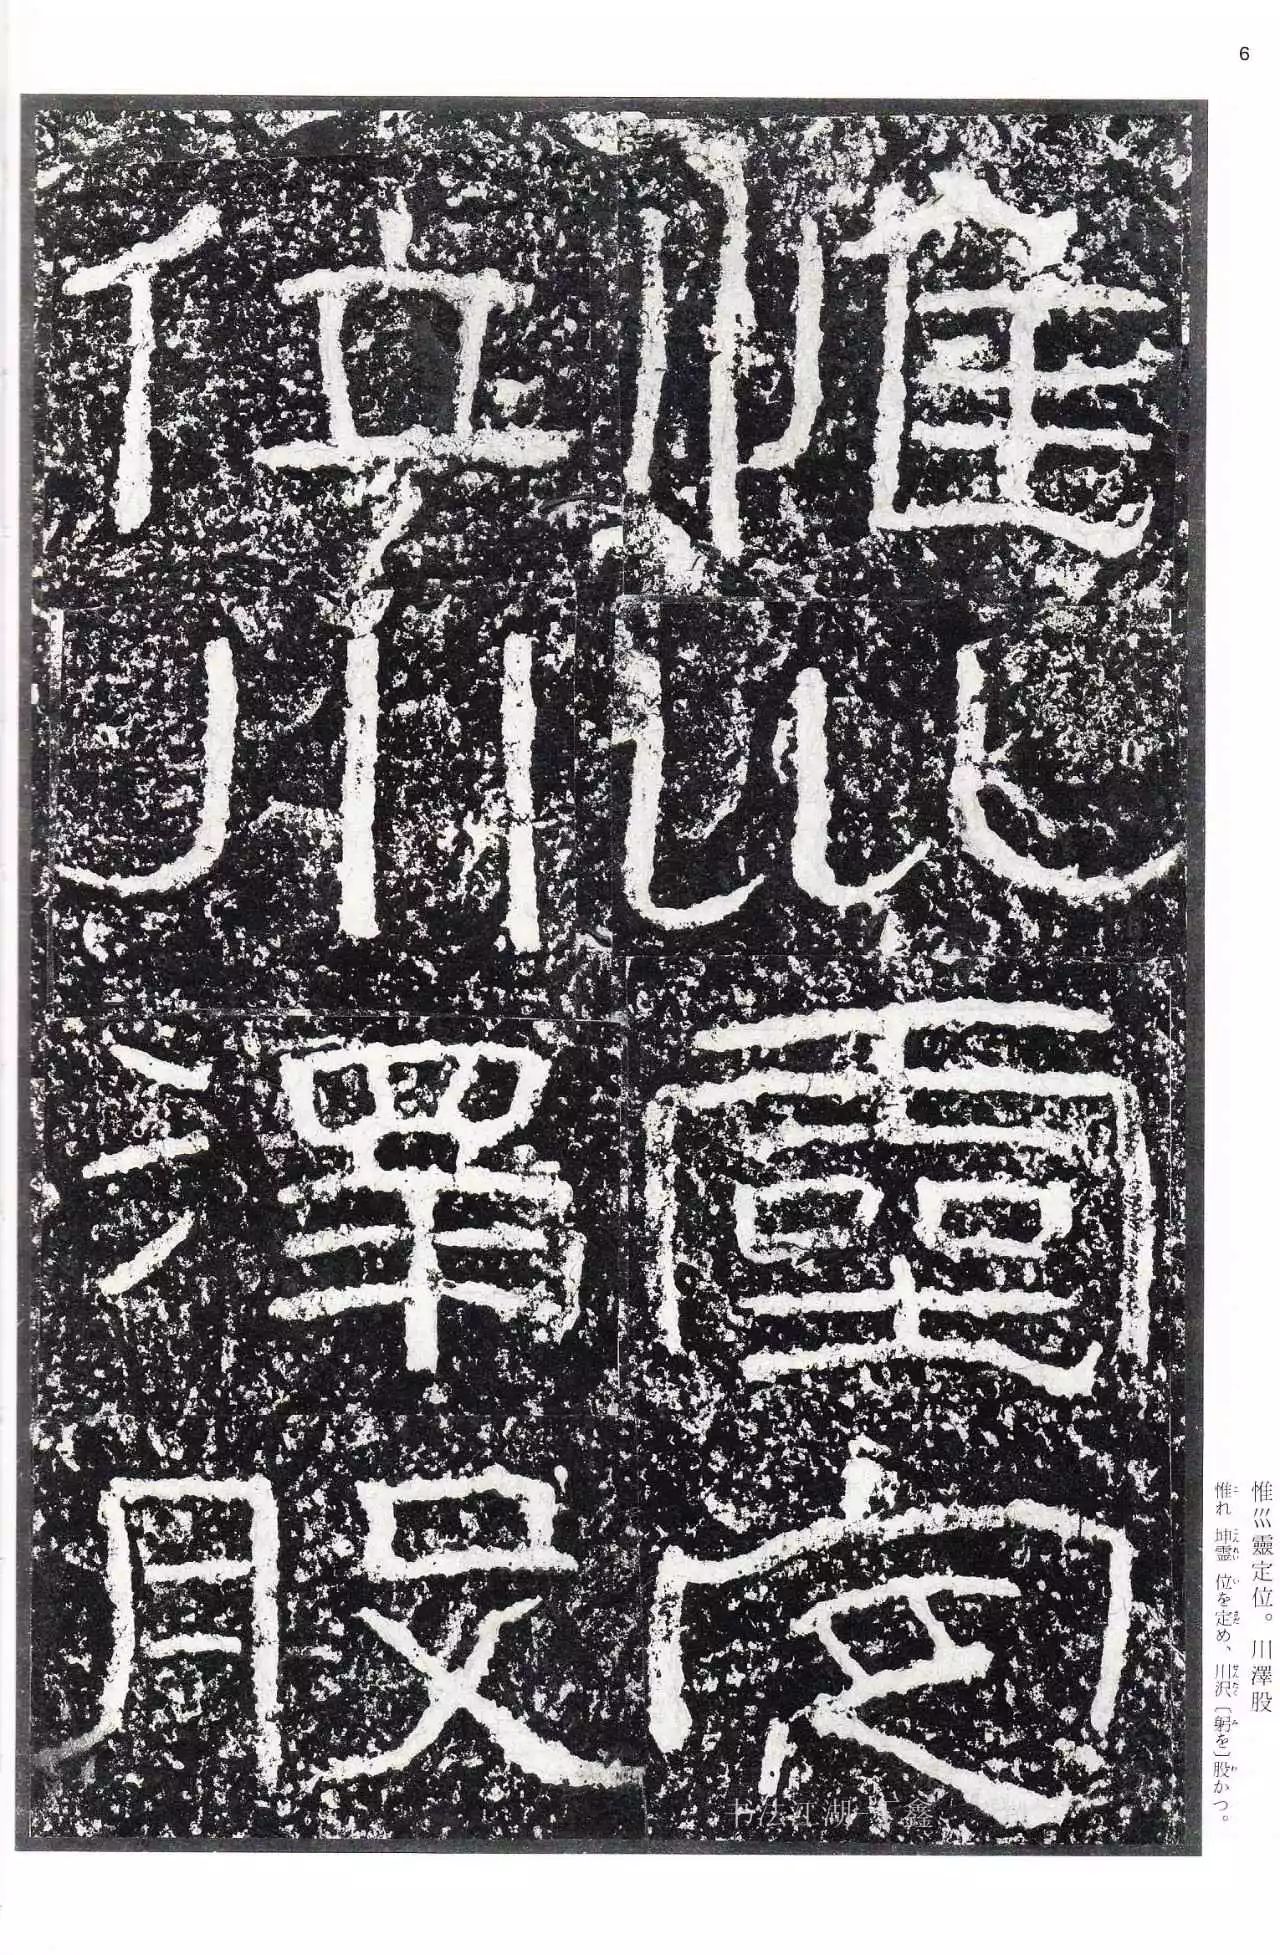 6
惟巛靈定
位川澤股
惟巛靈定位。川澤股
惟れ坤靈位を定め、川沢〔躬を〕股かつ。
书法江湖